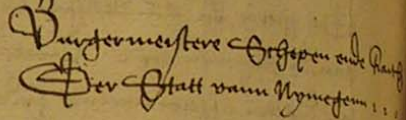 Burgermeistere Schepen ende Raeth
Der Statt vann Nymegenn